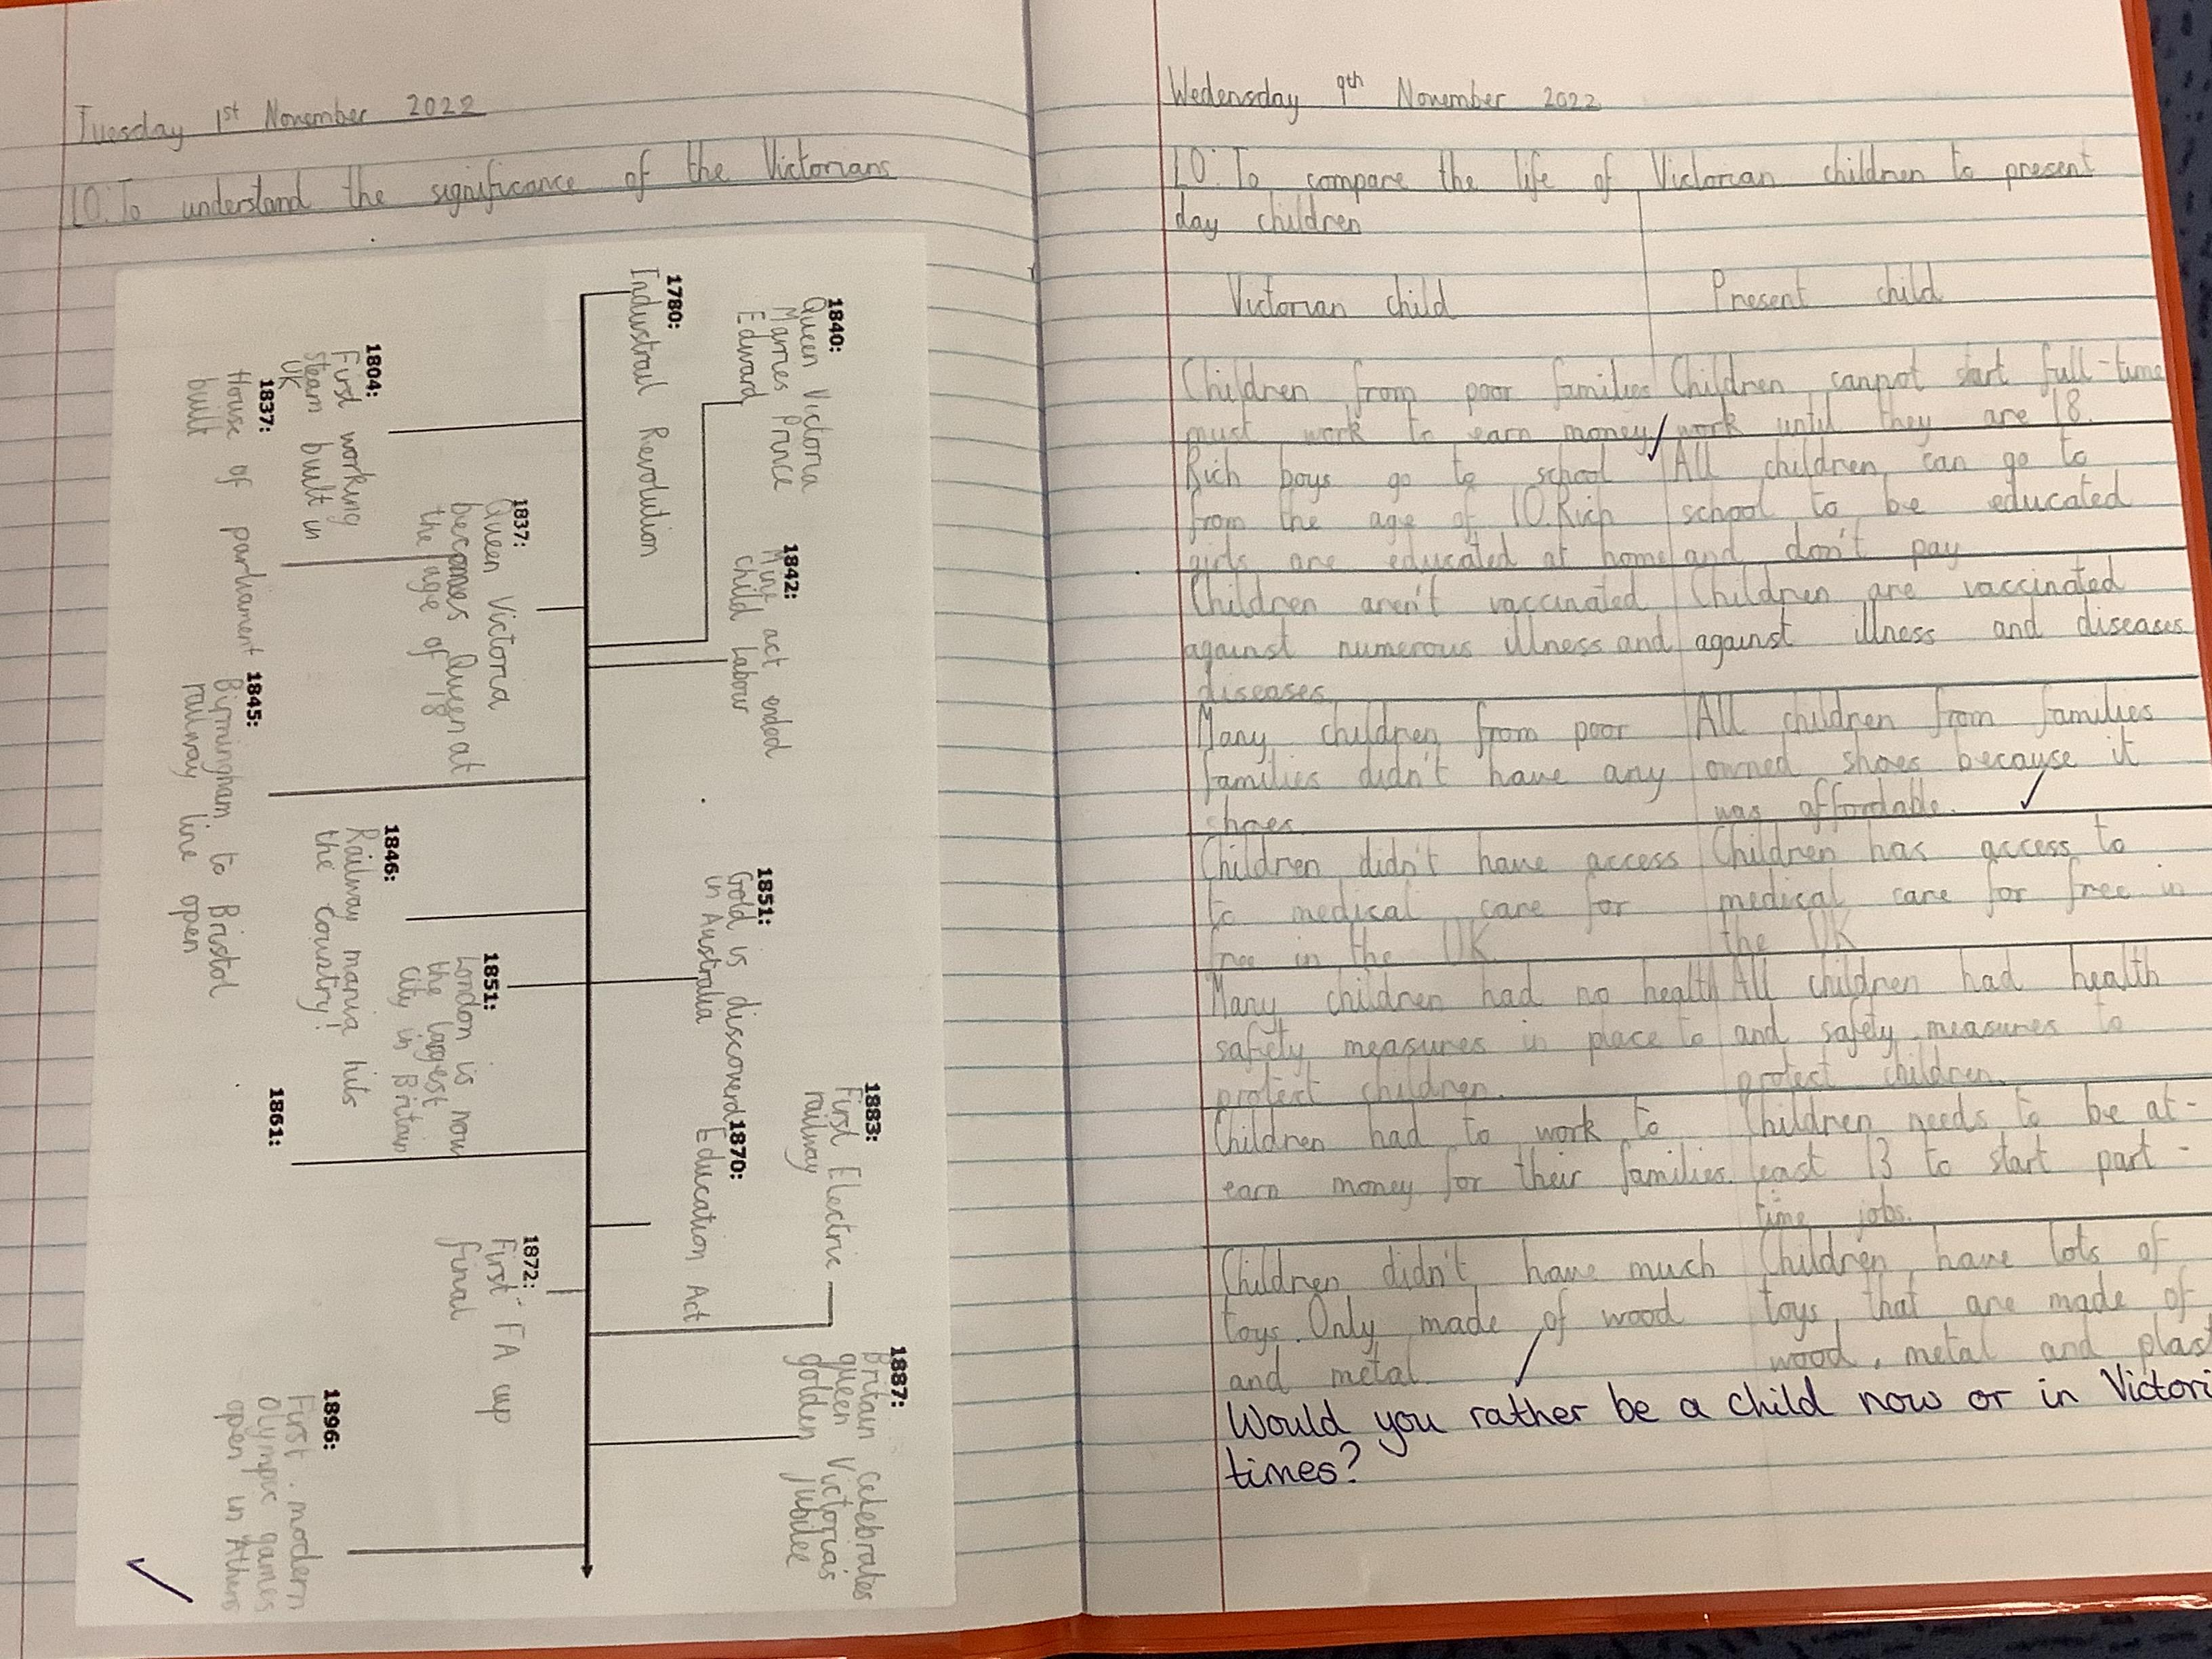 Tuesday 1st November 2022
LO: To understand the significance of the Victorians
1780:
Industrail Revolution
1840:
Queen Victoria
Marries Prince
Edward
1804:
First working
steam built in
UK
1837:
House of parliament
built
1837:
Queen Victoria
becomes Queen at
the age of 18
1842:
Mine act ended
child labour
1845:
Birmingham to Bristol
railway line open
1846:
Railway mania hits
the country!
1851:
Gold is discoverd
in Australia
1851:
London is now
the largest
city in Britain
1861:
1870:
Education Act
1883:
First Electric
railway
1872:
First FA cup
final
1887:
Britain celebrates
queen Victorias
golden jubilee
1896:
First modern
Olympic games
open in Athens
Wedensday 9th November 2022
LO: To compare the life of Victorian children to present
day children
Victorian child
Present child
Children from poor families
must work to earn money
Children cannot start full-time
work until they are 18.
Rich boys go to school
from the age of 10. Rich
girls are educated at home
All children can go to
school to be educated
and don't pay
Children aren't vaccinated
against numerous illness and
diseases
Children are vaccinated
against illness and diseases
Many children from poor
families didn't have any
shoes
All children from families
owned shoes because it
was affordable.
Children didn't have access
to medical care for
free in the UK
Children has access to
medical care for free in
the UK
Many children had no health
safety measures in place to
protect children.
All children had health
and safety measures to
protect children.
Children had to work to
earn money for their families.
Children needs to be at-
least 13 to start part-
time jobs.
Children didn't have much
toys. Only made of wood
and metal.
Children have lots of
toys that are made of
wood, metal and plast
Would you rather be a child now or in Victori
times?